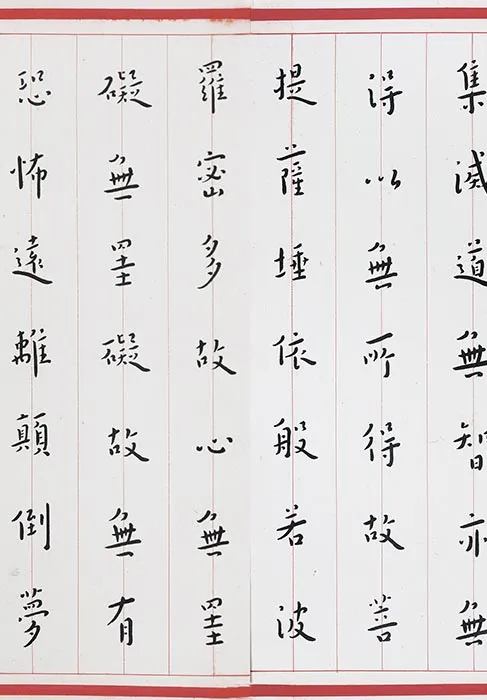 集滅道無智亦無
得以無所得故菩
提薩埵依般若波
羅蜜多故心無罣
礙無罣礙故無有
恐怖遠離顛倒夢